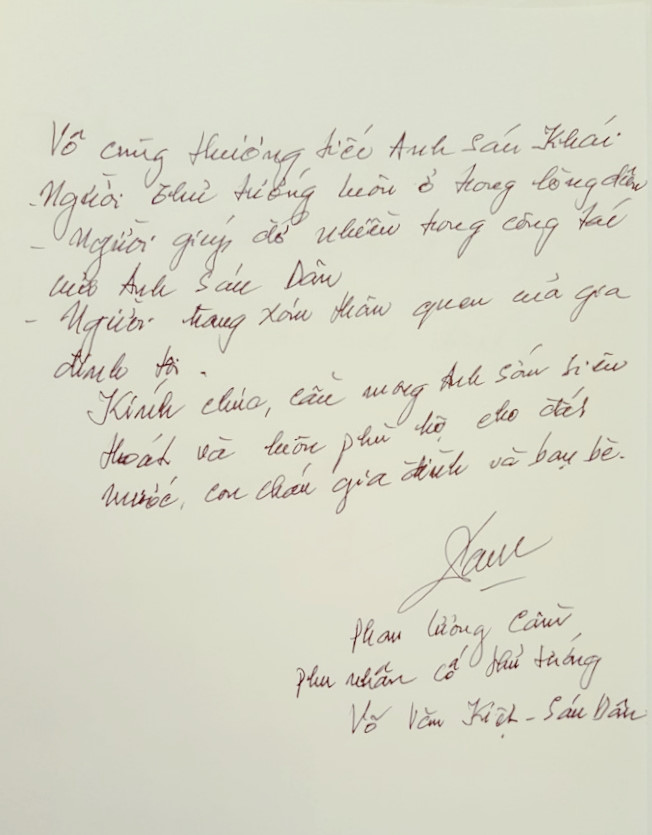 Vô cùng thương tiếc Anh Sáu Khải
- Người Thủ tướng luôn ở trong lòng dân
- Người giúp đỡ nhiều trong công tác
của Anh Sáu Dân
- Người trong xóm thân quen của gia
đình tôi.
Kính chúc, cầu mong Anh Sáu siêu
thoát và luôn phù hộ cho đất
nước, con cháu gia đình và bạn bè.
Phan Lương Cầm
Phu nhân cố thủ tướng
Võ Văn Kiệt - Sáu Dân